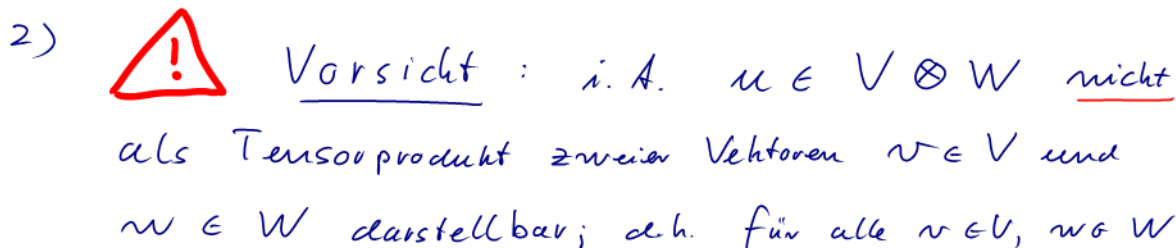 2) ! Vorsicht : i.A. u ∈ V ⊗ W nicht
als Tensorprodukt zweier Vektoren v ∈ V und
w ∈ W darstellbar; d.h. für alle v ∈ V, w ∈ W